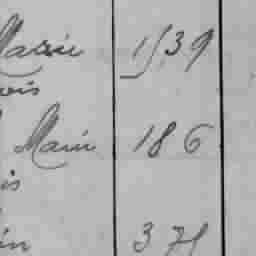 Marie 1539
ois
Marin 186
is
in 371